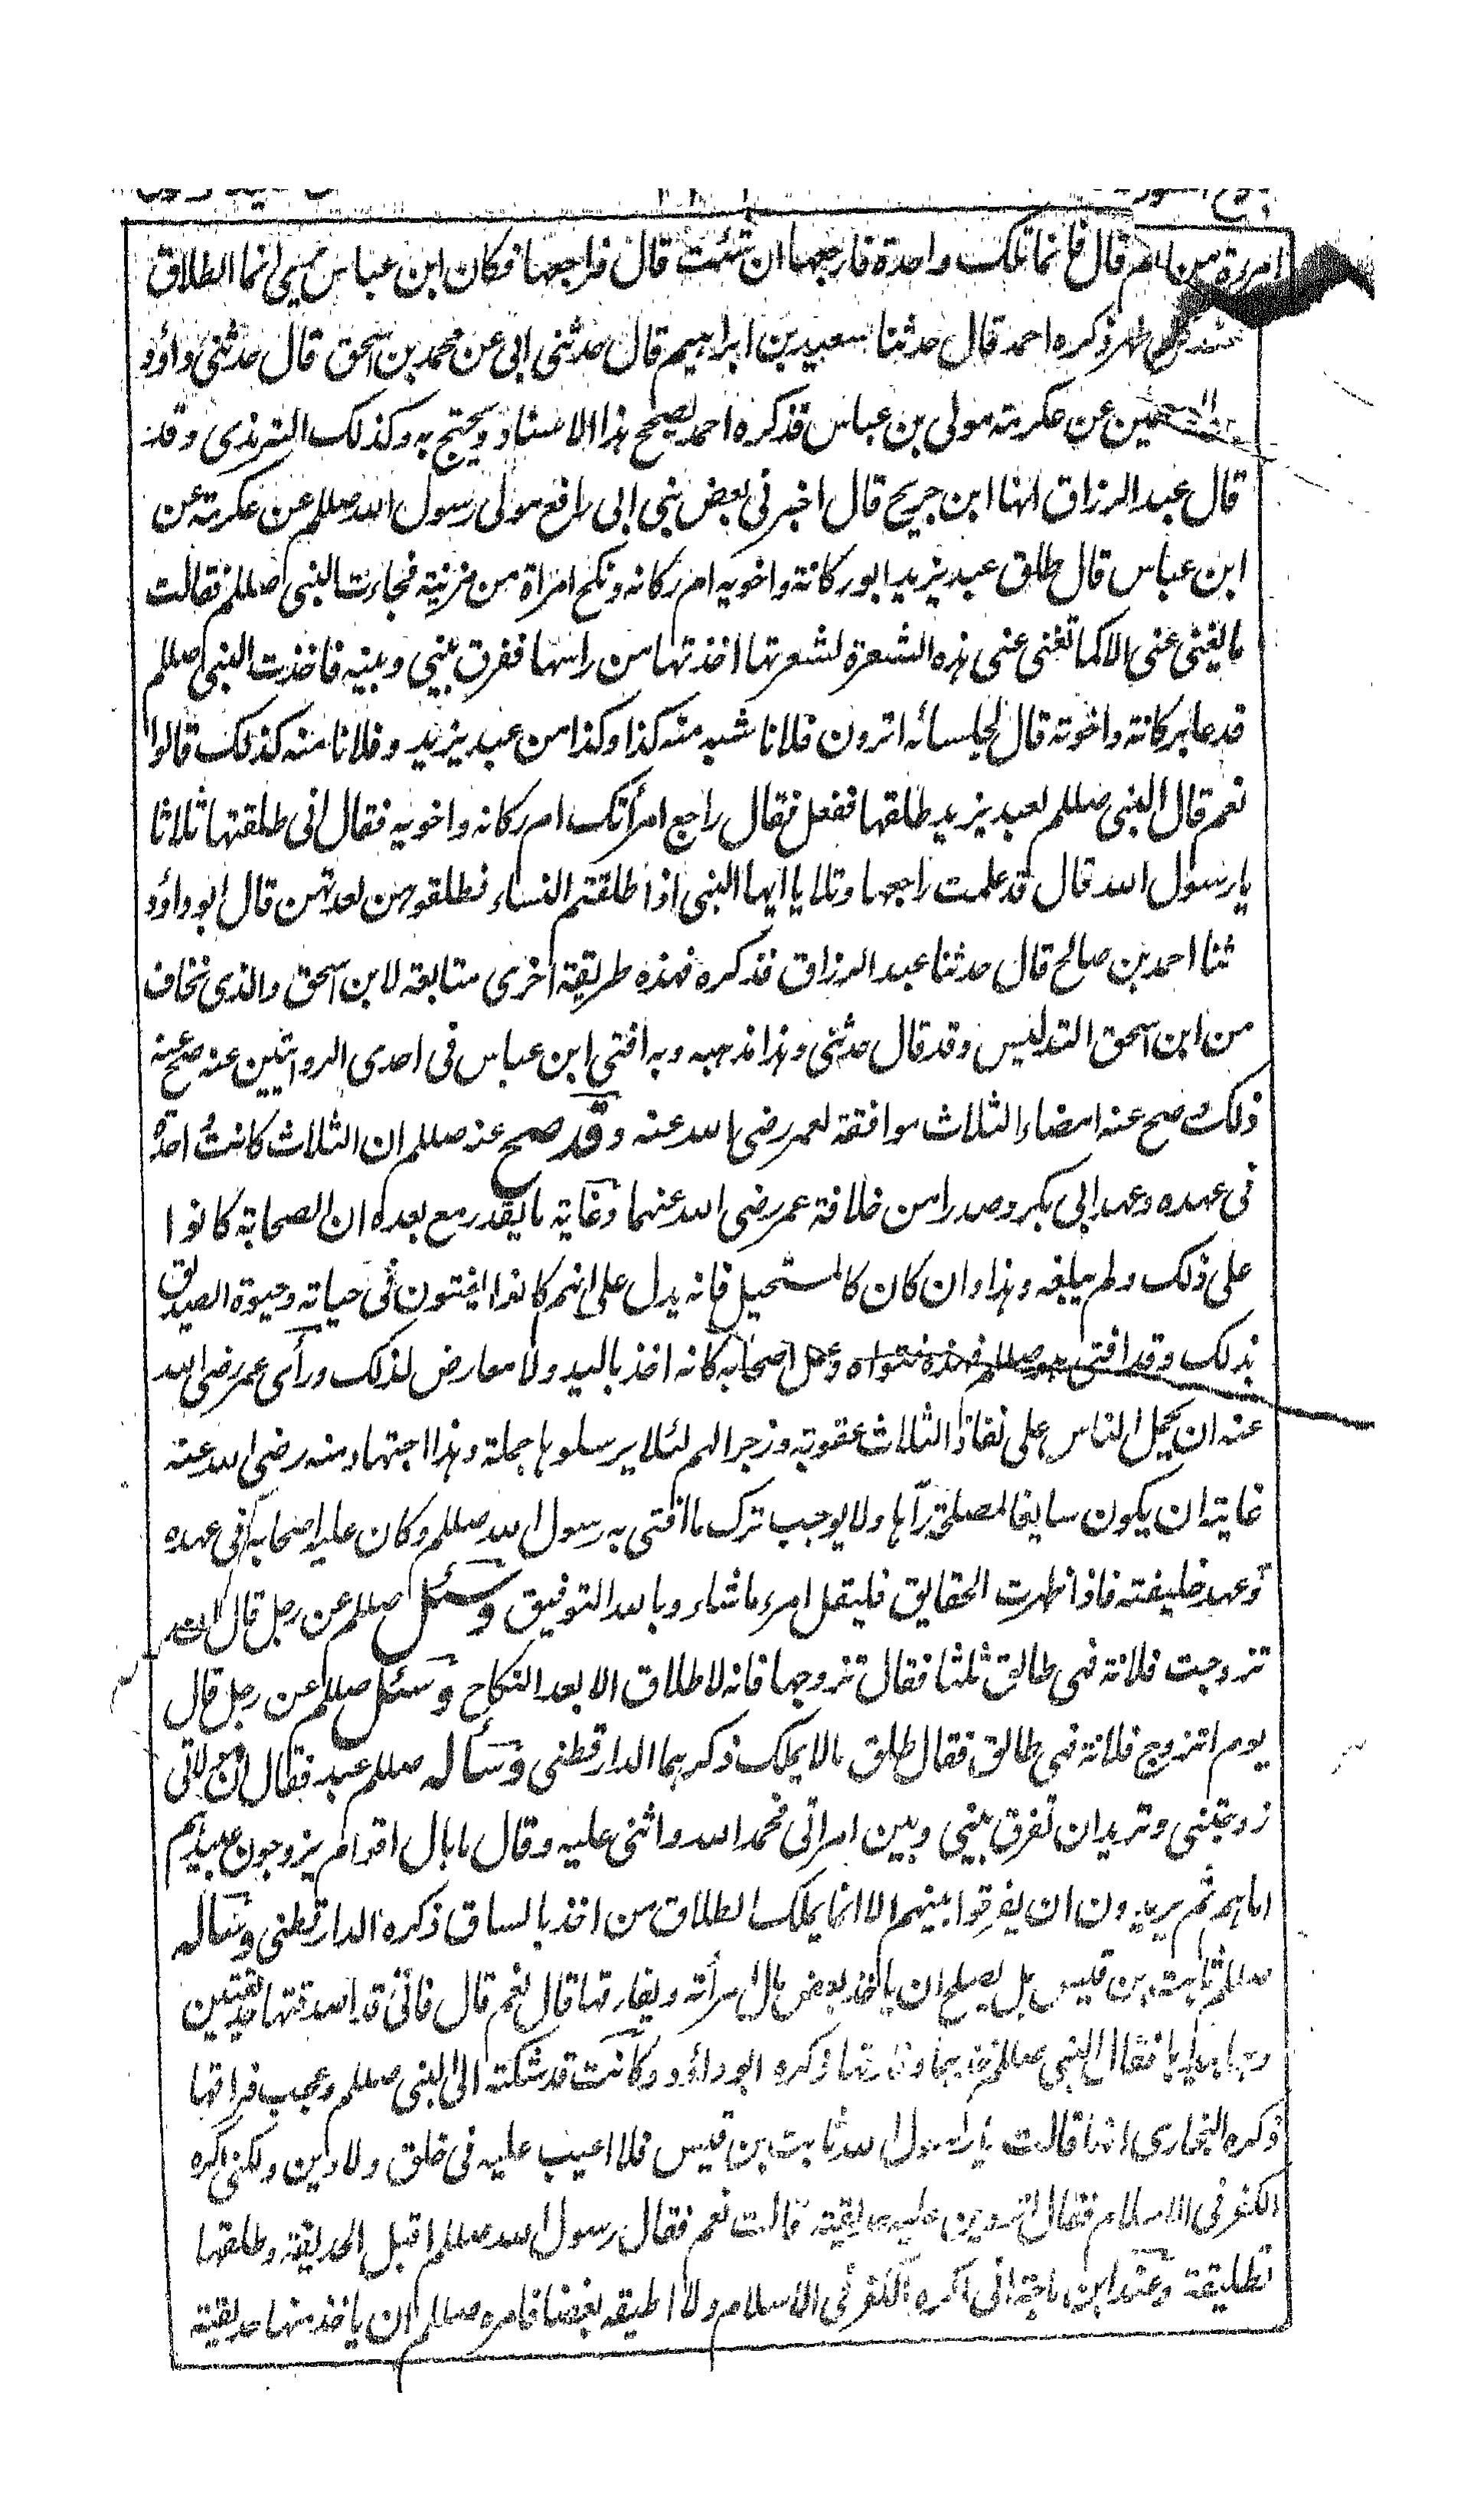 قال فانما تلك واحدة فارجعها ان شئت قال فراجعها فكان ابن عباس يرى انما الطلاق
عند كل طهر ذكره احمد قال حدثنا سعيد بن ابراهيم قال حدثنى ابى عن محمد بن اسحق قال حدثنى داؤد
بن الحصين عن عكرمة مولى بن عباس فذكره احمد يصحح هذا الاسناد ويحتج به وكذلك الترمذى وقد
قال عبد الرزاق انبانا ابن جريح قال اخبرنى بعض بنى ابى رافع مولى رسول الله صللم عن عكرمة عن
ابن عباس قال طلق عبد يزيد ابو ركانة واخويه ام ركانه ونكح امراة من مزنية فجاءت النبى صللم فقالت
ما يغنى عنى الا كما تغنى عنى هذه الشعرة لشعرتها اخذتها من راسها ففرق بينى وبينه فاخذت النبى صللم
فدعا بركانة واخوته قال لجلسائه اترون فلانا شبه منه كذا وكذا من عبد يزيد وفلانا منه كذلك قالوا
نعم قال النبى صللم لعبد يزيد طلقها ففعل فقال راجع امرأتك ام ركانه واخويه فقال انى طلقتها ثلاثا
يا رسول الله قال قد علمت راجعها وتلا يا ايها النبى اذا طلقتم النساء فطلقوهن لعدتهن قال ابو داؤد
ثنا احمد بن صالح قال حدثنا عبد الرزاق فذكره فهذه طريقة اخرى متابعة لابن اسحق والذى نخاف
من ابن اسحق التدليس وقد قال حدثنى وهذا مذهبه وبه افتى ابن عباس فى احدى الروايتين عنه صح عنه
ذلك وصح عنه امضاء الثلاث موافقة لعمر رضى الله عنه وقد صح عنه صللم ان الثلاث كانت واحدة
فى عهده وعهد ابى بكر وصدرا من خلافة عمر رضى الله عنهما وغاية ما يقدر مع بعده ان الصحابة كانوا
على ذلك ولم يبلغه وهذا وان كان كالمستحيل فانه يدل على انهم كانوا يفتون فى حياته وحيوة الصديق
بذلك وقد افتى هو صللم فهذه فتواه وعمل اصحابه كانه اخذ باليد ولا معارض لذلك ورأى عمر رضى الله
عنه ان يحمل الناس على نفاذ الثلاث عقوبة وزجرا لهم لئلا يرسلوها جملة وهذا اجتهاد منه رضى الله عنه
غايته ان يكون سايغا لمصلحة رآها ولا يوجب ترك ما افتى به رسول الله صللم وكان عليه اصحابه فى عهده
وعهد خليفته فاذا ظهرت الحقايق فليقل امرء ما شاء وبالله التوفيق وسئل صللم عن رجل قال ان
تزوجت فلانة فهى طالق ثلثا فقال تزوجها فانه لا طلاق الا بعد النكاح وسئل صللم عن رجل قال
يوم اتزوج فلانة فهى طالق فقال طلق ما لا يملك ذكرهما الدارقطنى وسأله صللم عبد فقال ان مولاتى
زوجتنى وتريد ان تفرق بينى وبين امراتى فحمد الله واثنى عليه وقال ما بال اقوام يزوجون عبيدهم
اماءهم ثم يريدون ان يفرقوا بينهم الا انما يملك الطلاق من اخذ بالساق ذكره الدارقطنى وسأله
صللم ثابت بن قيس هل يصلح ان ياخذ بعض مال امرأته ويفارقها قال نعم قال فانى قد اصدقتها حديقتين
وهما بيدها فقال النبى صللم خذهما وفارقها ذكره ابو داؤد وكانت قد شكته الى النبى صللم وتحب فراقها
ذكره البخارى انها قالت يا رسول الله ثابت بن قيس فلا اعيب عليه فى خلق ولا دين ولكنى اكره
الكفر فى الاسلام فقال تردين عليه حديقته قالت نعم فقال رسول الله صللم اقبل الحديقة وطلقها
تطليقة وعند ابن ماجة انى اكره الكفر فى الاسلام ولا اطيقه بغضا فامره صللم ان ياخذ منها حديقته